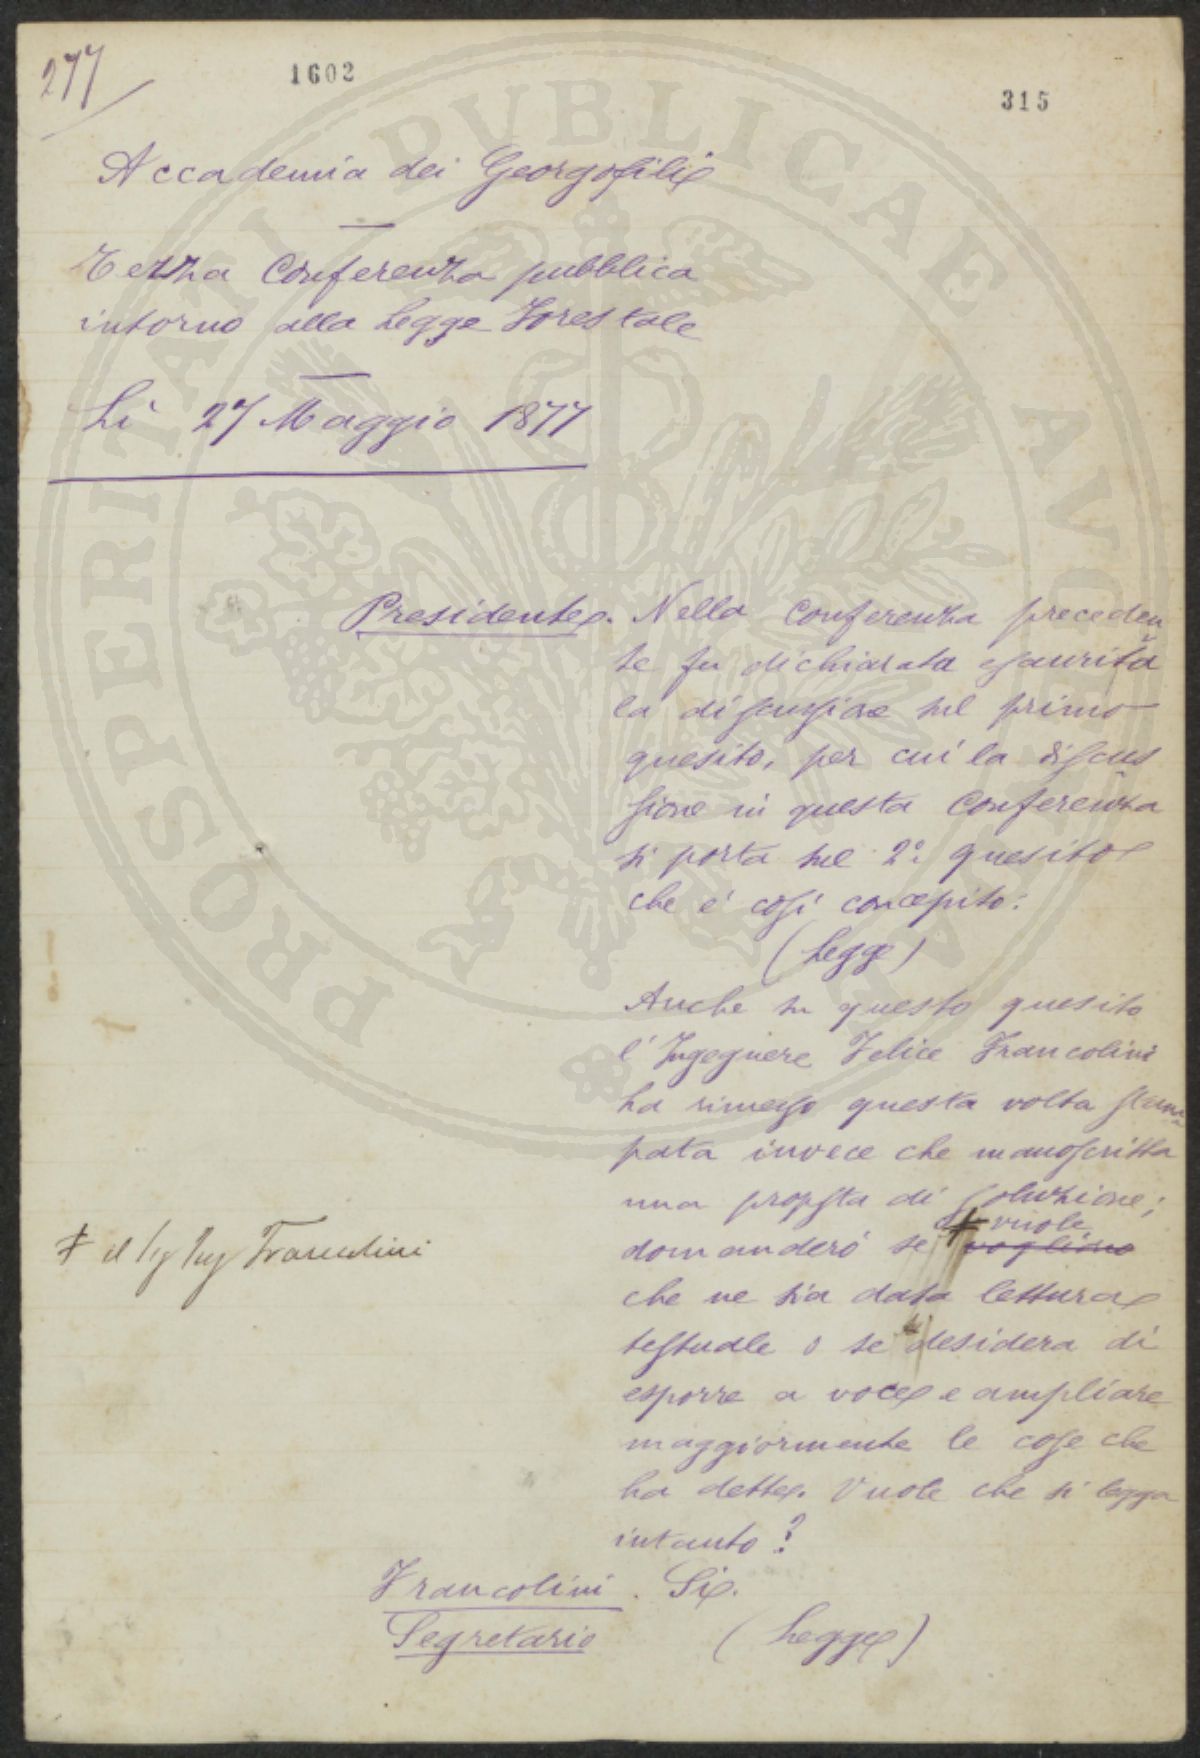 277
1602
315
Accademia dei Georgofili
Terza Conferenza pubblica
intorno alla Legge Forestale
Li 27 Maggio 1877
Presidente. Nella Conferenza preceden
te fu dichiarata esaurita
la discussione sul primo
quesito, per cui la discus
sione in questa Conferenza
si porta sul 2º quesito
che é cosí concepito:
(Legge)
Anche su questo quesito
l'Ingegnere Felice Francolini
ha rimesso questa volta stam
pata invece che manoscritta
una proposta di soluzione;
vuole
domanderó se vogliono
il Sig Ing Francolini
che ne sia data lettura
testuale o se desidera di
esporre a voce e ampliare
maggiormente le cose che
ha dette. Vuole che si legga
intanto?
Francolini. Si.
Segretario (Legge)
PROSPERITATI PUBLICAE AVGENDAE